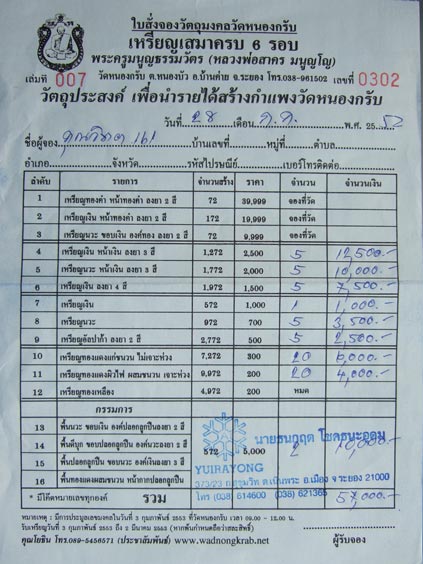 ใบสั่งจองวัตถุมงคลวัดหนองกรับ
เหรียญเสมาครบ 6 รอบ
พระครูมนูญธรรมวัตร (หลวงพ่อสาคร มนุญโญ)
เล่มที่ 007 วัดหนองกรับ ต.หนองบัว อ.บ้านค่าย จ.ระยอง โทร.038-961502 เลขที่ 0302
วัตถุประสงค์ เพื่อนำรายได้สร้างกำแพงวัดหนองกรับ
วันที่ 28 เดือน ต.ค. พ.ศ. 2552
ชื่อผู้จอง บ้านเลขที่ หมู่ที่ ตำบล
อำเภอ จังหวัด รหัสไปรษณีย์ เบอร์โทรติดต่อ
ลำดับ รายการ จำนวนสร้าง ราคา จำนวน จำนวนเงิน
1 เหรียญทองคำ หน้าทองคำ ลงยา 2 สี 72 39,999 จองที่วัด
2 เหรียญเงิน หน้าทองคำ ลงยา 2 สี 172 19,999 จองที่วัด
3 เหรียญนวะ ขอบเงิน องค์ทอง ลงยา 2 สี 72 9,999 จองที่วัด
4 เหรียญเงิน หน้าเงิน ลงยา 3 สี 1,272 2,500 5 12,500.-
5 เหรียญนวะ หน้าเงิน ลงยา 3 สี 1,772 2,000 5 10,000.-
6 เหรียญเงิน ลงยา 4 สี 1,972 1,500 5 7,500.-
7 เหรียญเงิน 572 1,000 1 1,000.-
8 เหรียญนวะ 972 700 5 3,500.-
9 เหรียญอัลปาก้า ลงยา 2 สี 2,772 500 5 2,500.-
10 เหรียญทองแดงแช่ขนวน ไม่เจาะห่วง 7,272 300 20 6,000.-
11 เหรียญทองแดงผิวไฟ ผสมชนวน เจาะห่วง 9,972 200 20 4,000.-
12 เหรียญทองเหลือง 4,972 200 หมด
กรรมการ
13 พื้นนวะ ขอบเงิน องค์ปลอกลูกปืนลงยา 2 สี
14 พื้นดีบุก ขอบปลอกลูกปืน องค์นวะลงยา 2 สี 572 5,000 2 10,000.-
15 พื้นปลอกลูกปืน ขอบนวะ องค์เงินลงยา 3 สี
16 พื้นทองแดงผสมชนวน หน้ากากปลอกลูกปืน
นายธนกฤต โชคธนะอุดม
YUIRAYONG
373/23 ถ.สุขุมวิท ต.เนินพระ อ.เมือง จ.ระยอง 21000
โทร (038) 614600 (038) 621365
* มีโค๊ตหมายเลขทุกองค์ รวม 57,000.-
หมายเหตุ : มีการประมูลเลขมงคลในวันที่ 3 กุมภาพันธ์ 2553 ที่วัดหนองกรับ เวลา 09.00 - 12.00 น.
รับเหรียญวันที่ 3 กุมภาพันธ์ 2553 ถึง 2 มีนาคม 2553 (หากพ้นกำหนดถือว่าสละสิทธิ์)
คุณโยธิน โทร.089-5456571 (ประชาสัมพันธ์) www.wadnongkrab.net ผู้รับจอง